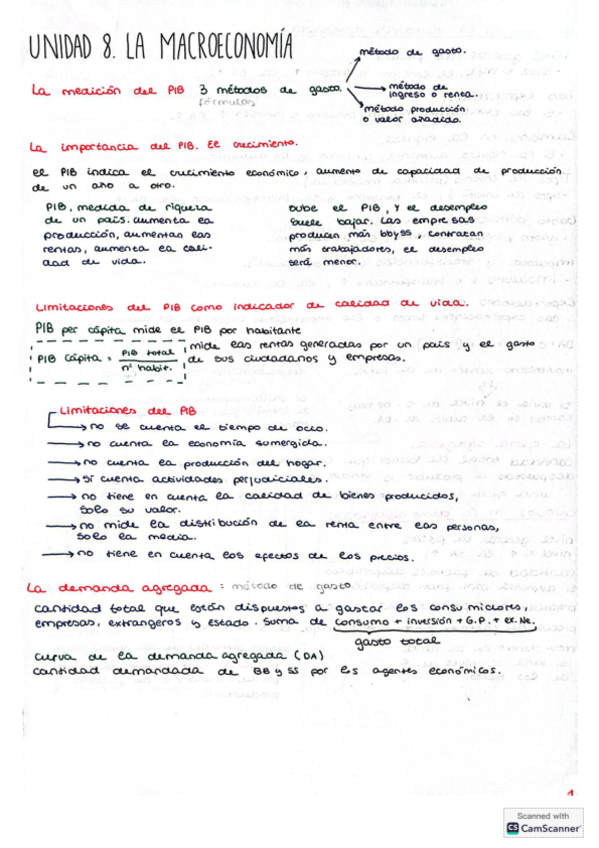 UNIDAD 8. LA MACROECONOMÍA
método de gasto.
La medición del PIB 3 métodos de gasto
fórmulas
método de
ingreso o renta.
método producción
o valor añadido.
La importancia del PIB. El crecimiento.
el PIB indica el crecimiento económico, aumento de capacidad de producción
de un año a otro.
PIB, medida de riqueza
de un país. aumenta la
producción, aumentan las
rentas, aumenta la cali-
dad de vida.
sube el PIB, y el desempleo
suele bajar. Las empresas
producen más bbyss, contratan
más trabajadores, el desempleo
será menor.
Limitaciones del PIB como indicador de calidad de vida.
PIB per cápita mide el PIB por habitante
PIB cápita = PIB total
nº habit.
mide las rentas generadas por un país y el gasto
de sus ciudadanos y empresas.
Limitaciones del PIB
no se cuenta el tiempo de ocio.
no cuenta la economía sumergida.
no cuenta la producción del hogar.
sí cuenta actividades perjudiciales.
no tiene en cuenta la calidad de bienes producidos,
solo su valor.
no mide la distribución de la renta entre las personas,
solo la media.
no tiene en cuenta los efectos de los precios.
La demanda agregada: método de gasto
cantidad total que están dispuestos a gastar los consumidores,
empresas, extranjeros y estado. Suma de consumo + inversión + G.P. + ex. Ne.
gasto total
curva de la demanda agregada (DA)
cantidad demandada de BB y SS por los agentes económicos.
1
Scanned with
CS CamScanner